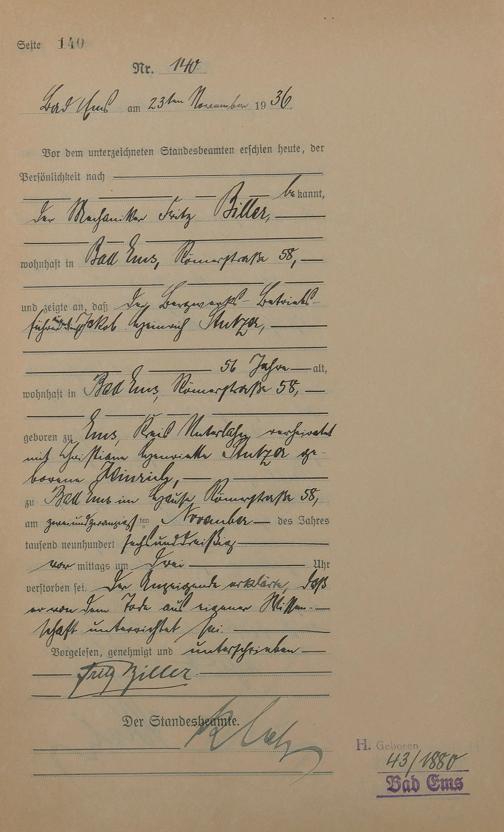 Seite 140
Nr. 140
Bad Ems am 23ten November 1936
Vor dem unterzeichneten Standesbeamten erschien heute, der
Persönlichkeit nach
bekannt,
der Mechaniker Fritz Biller,
wohnhaft in Bad Ems, Römerstraße 58,
und zeigte an, daß der Bergwerks-Betriebs-
Jakob Heinrich Stutzer,
56 Jahre alt,
wohnhaft in Bad Ems, Römerstraße 58,
geboren zu Ems, Kreis Unterlahn verheiratet
mit Christiane Henriette Stutzer ge-
borene Hinrich,
zu Bad Ems im Hause Römerstraße 58,
am zweiundzwanzigsten November des Jahres
tausend neunhundert sechsunddreißig
vor mittags um drei Uhr
verstorben sei. Der Anzeigende erklärte, daß
er von dem Tode aus eigener Wissen-
schaft unterrichtet sei.
Vorgelesen, genehmigt und unterschrieben
Fritz Biller
Der Standesbeamte.
H. Geboren
43/1880
Bad Ems